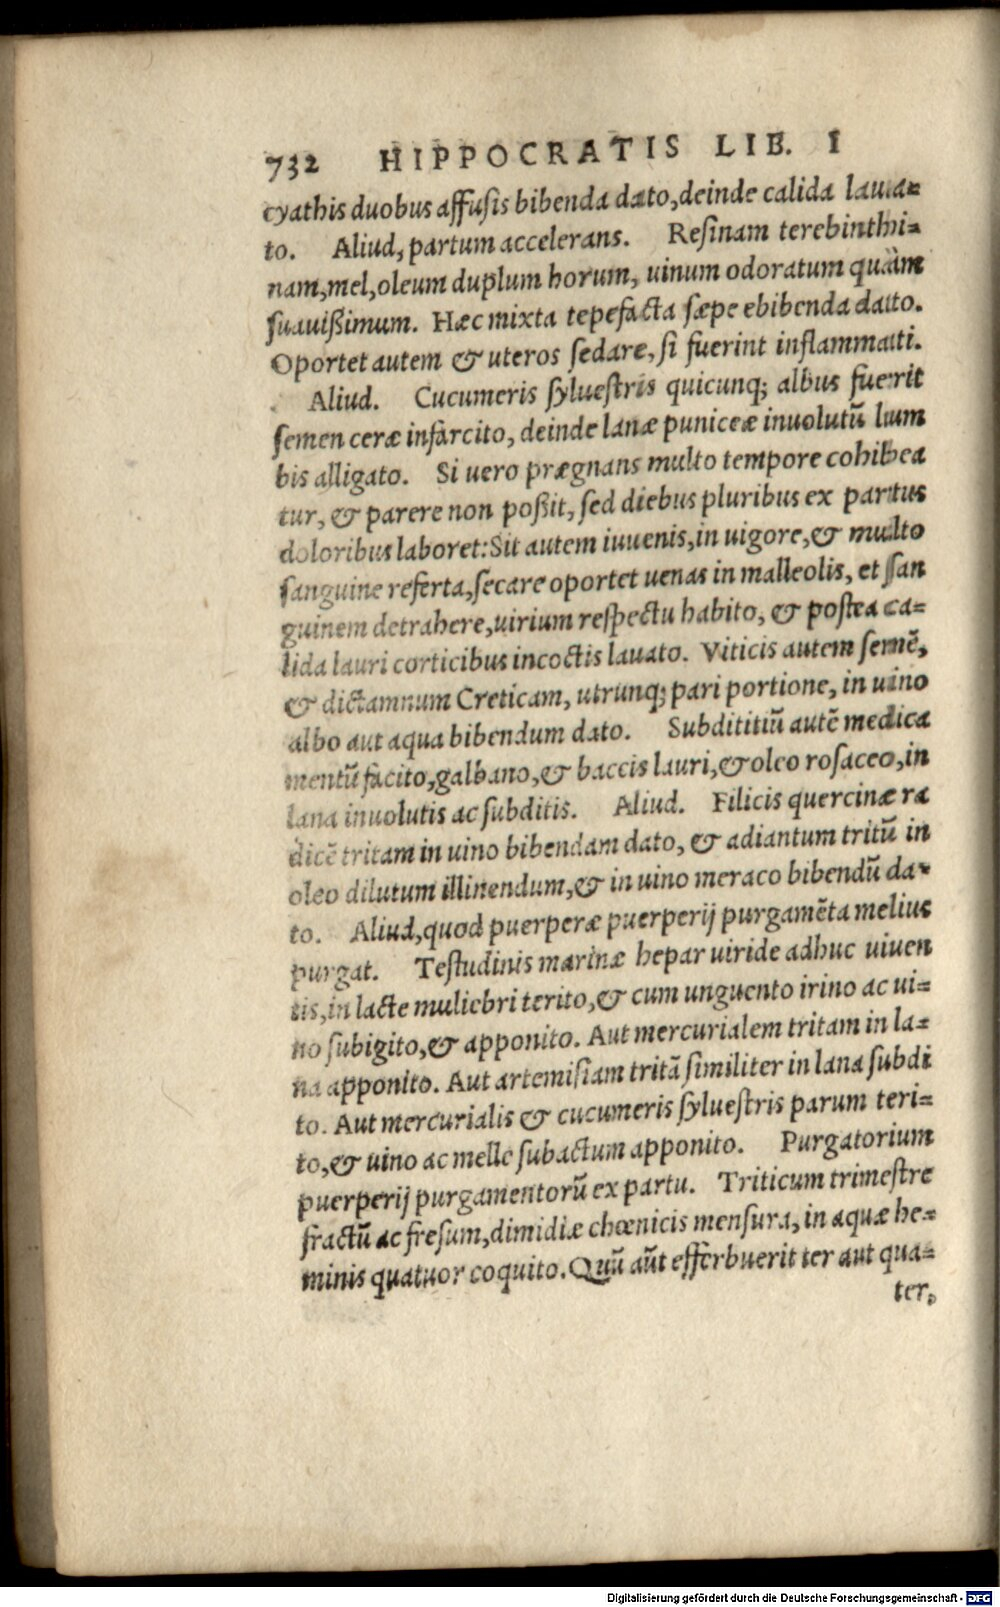 732 HIPPOCRATIS LIB. I
cyathis duobus affusis bibenda dato, deinde calida laua=
to. Aliud, partum accelerans. Resinam terebinthi=
nam, mel, oleum duplum horum, uinum odoratum quàm
suauißimum. Hæc mixta tepefacta sæpe ebibenda dato.
Oportet autem & uteros sedare, si fuerint inflammati.
Aliud. Cucumeris syluestris quicunq; albus fuerit
semen ceræ infarcito, deinde lanæ puniceæ inuolutū lum
bis alligato. Si uero prægnans multo tempore cohibea
tur, & parere non poßit, sed diebus pluribus ex partus
doloribus laboret: Sit autem iuuenis, in uigore, & multo
sanguine referta, secare oportet uenas in malleolis, et san
guinem detrahere, uirium respectu habito, & postea ca=
lida lauri corticibus incoctis lauato. Viticis autem semē,
& dictamnum Creticam, utrunq; pari portione, in uino
albo aut aqua bibendum dato. Subdititiū autē medica
mentū facito, galbano, & baccis lauri, & oleo rosaceo, in
lana inuolutis ac subditis. Aliud. Filicis quercinæ ra
dicē tritam in uino bibendam dato, & adiantum tritū in
oleo dilutum illinendum, & in uino meraco bibendū da=
to. Aliud, quod puerperæ puerperij purgamēta melius
purgat. Testudinis marinæ hepar uiride adhuc uiuen
tis, in lacte muliebri terito, & cum unguento irino ac ui=
no subigito, & apponito. Aut mercurialem tritam in la=
na apponito. Aut artemisiam tritā similiter in lana subdi
to. Aut mercurialis & cucumeris syluestris parum teri=
to, & uino ac melle subactum apponito. Purgatorium
puerperij purgamentorū ex partu. Triticum trimestre
fractū ac fresum, dimidiæ chœnicis mensura, in aquæ he=
minis quatuor coquito. Quū aūt efferbuerit ter aut qua=
ter,
Digitalisierung gefördert durch die Deutsche Forschungsgemeinschaft - DFG